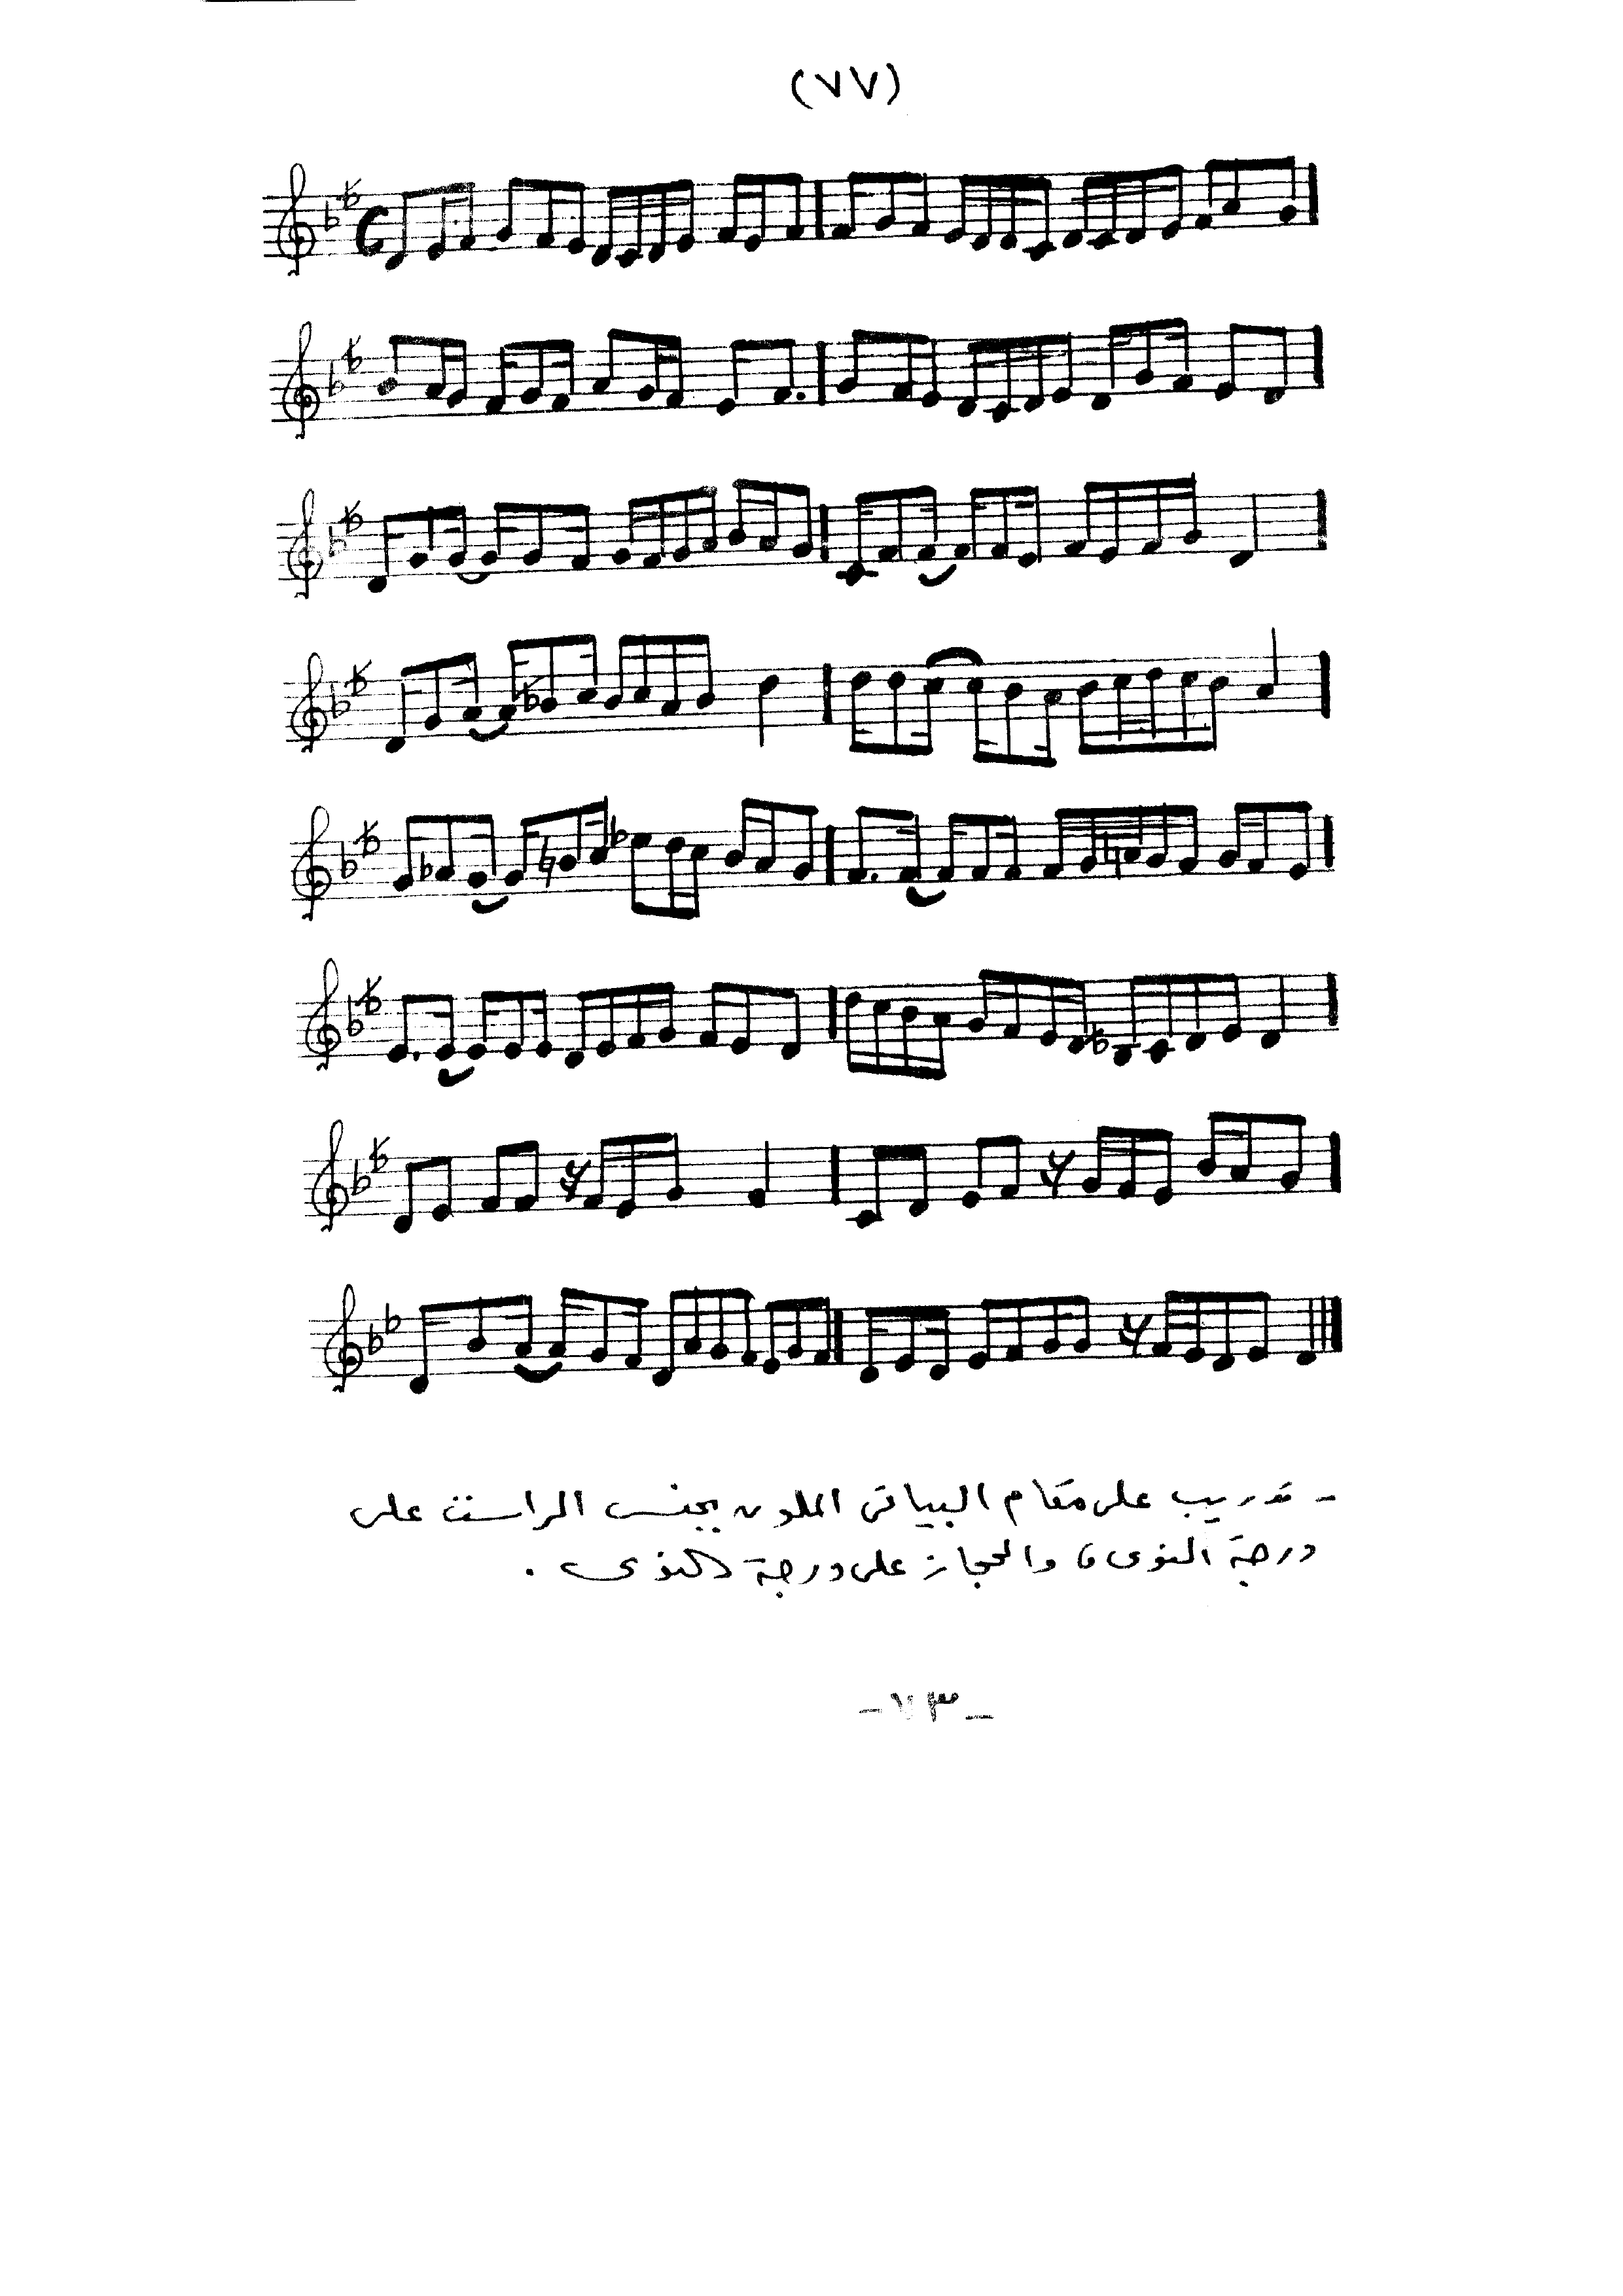 (٧٧)
- تدريب على مقام البياتى الملون بجنس الراست على
درجة النوى، والحجاز على درجة النوى.
- ٧٣ -